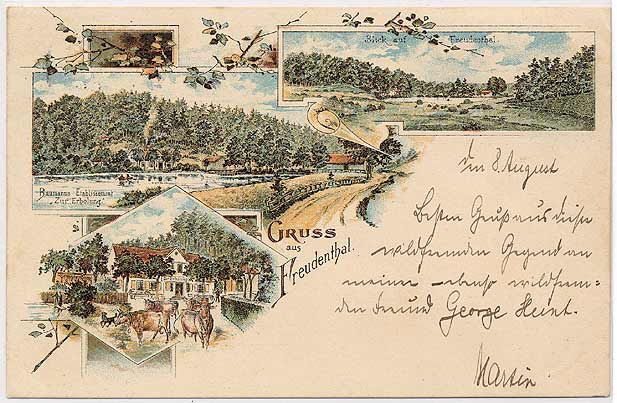 Blick auf Freudenthal.
Baumanns Etablissement
„Zur Erholung"
GRUSS
aus
Freudenthal.
den 8 August
Besten Gruß aus dieser
wildfremden Gegend an
meinen ebenso wildfrem=
den Freund George
Martin